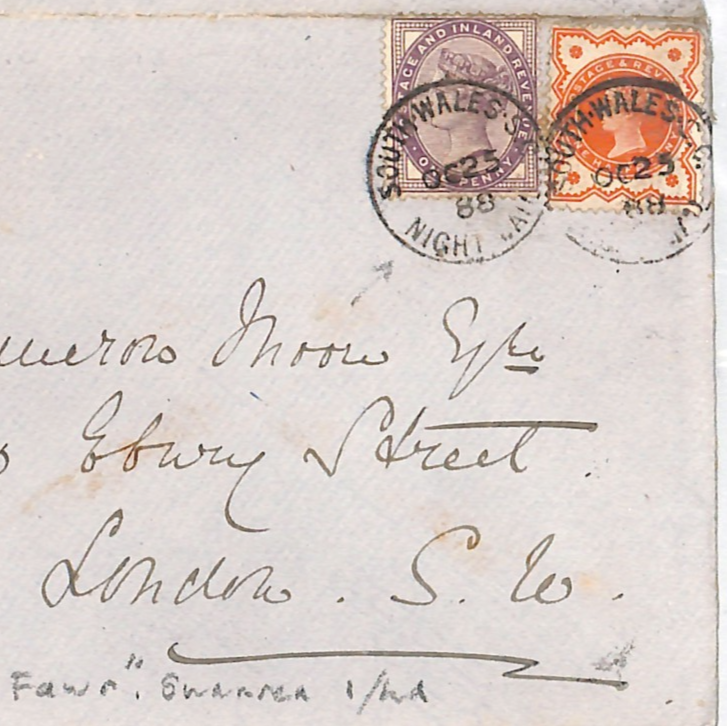 POSTAGE AND INLAND REVENUE
ONE PENNY
POSTAGE & REVENUE
SOUTH·WALES·S
OC 25
88
NIGHT MAIL
SOUTH·WALES
OC 25
88
meron Moore Esqre
Ebury Street
London. S. W.
Fawn". Swansea